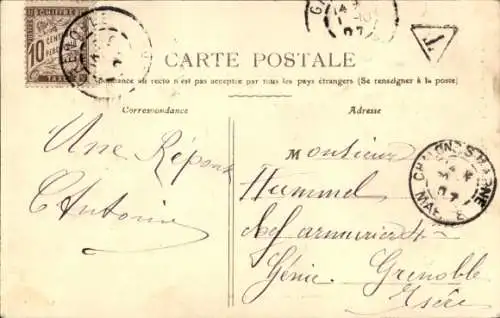 CHIFFRE
10
CENT
TAXE
T
CARTE POSTALE
Correspondance au recto n'est pas acceptée par tous les pays étrangers (Se renseigner à la poste)
Correspondance
Adresse
Une Réponse
C Antoine
Monsieur
Hummel
Chef armurier
Génie. Grenoble
Isère
CHALONS S MARNE
MARNE